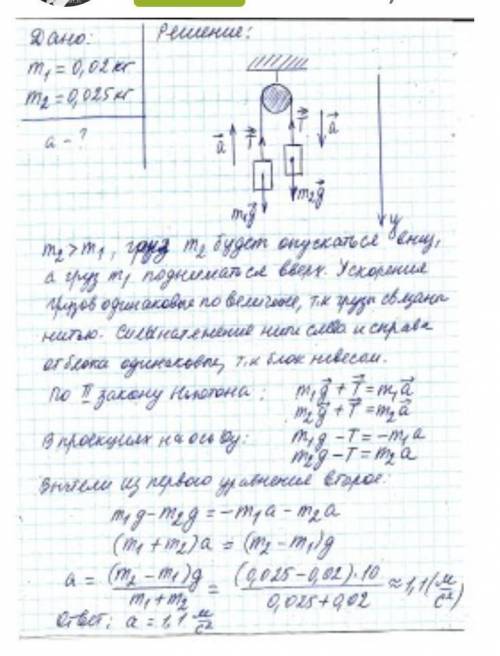 Дано:
Решение:
m₁ = 0,02 кг
m₂ = 0,025 кг
a - ?
a⃗
T⃗
T⃗
a⃗
m₁g⃗
m₂g⃗
y
m₂ > m₁, груз m₂ будет опускаться вниз,
а груз m₁ подниматься вверх. Ускорения
грузов одинаковые по величине, т.к грузы связаны
нитью. Силы натяжение нити слева и справа
от блока одинаковы, т.к блок невесом.
По II закону Ньютона: m₁g⃗ + T⃗ = m₁a⃗
m₂g⃗ + T⃗ = m₂a⃗
В проекциях на ось Oy: m₁g - T = -m₁a
m₂g - T = m₂a
Вычтем из первого уравнения второе:
m₁g - m₂g = -m₁a - m₂a
(m₁ + m₂)a = (m₂ - m₁)g
a = (m₂ - m₁)g / m₁ + m₂ = (0,025 - 0,02)·10 / 0,025 + 0,02 ≈ 1,1 (м/с²)
Ответ: a = 1,1 м/с²